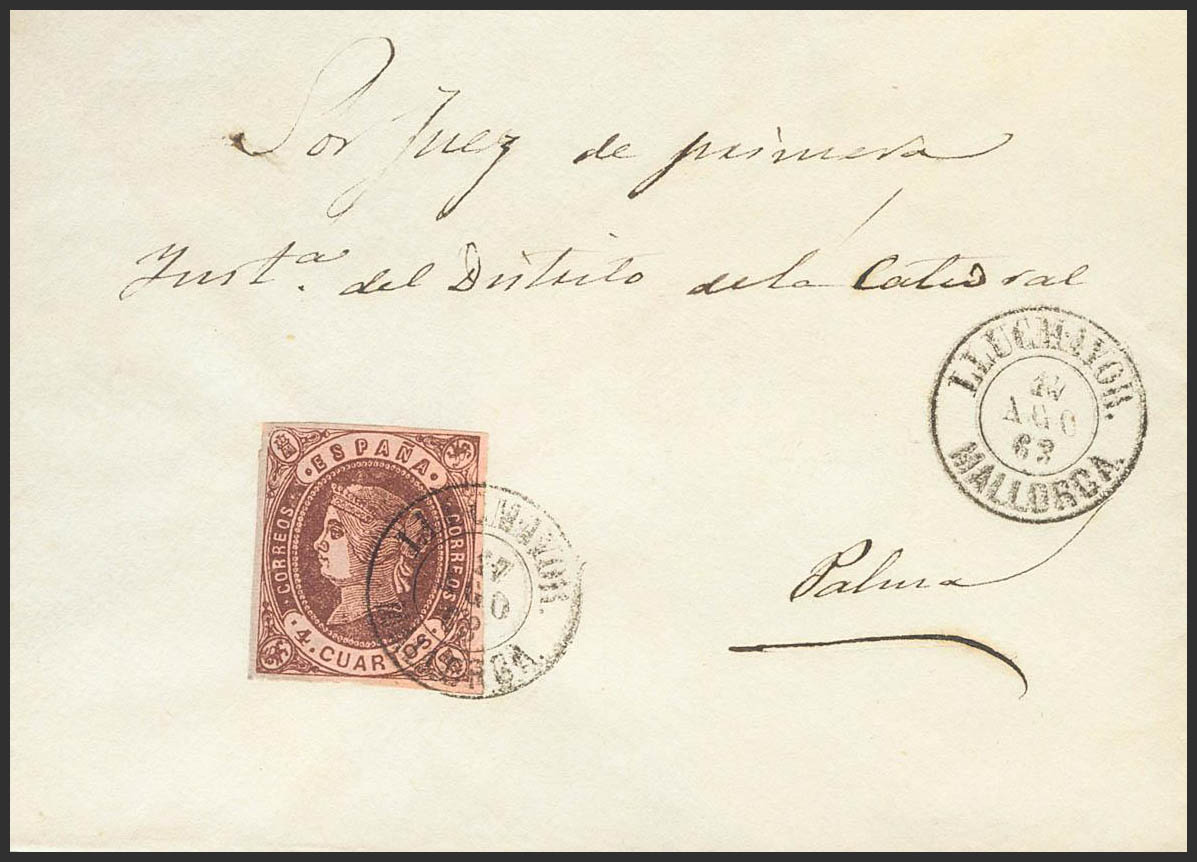 Sor Juez de primera
Inst.ª del Distrito de la Catedral
LLUCHMAYOR.
AGO
63
MALLORCA.
ESPAÑA
CORREOS
CORREOS
4. CUARTOS.
Palma